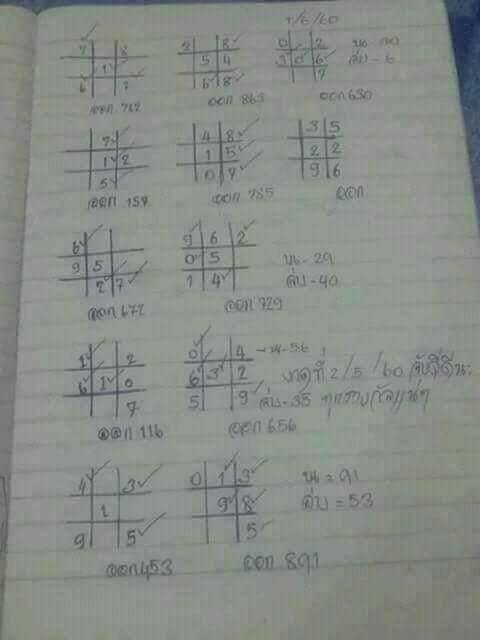 1/6/60
7 8
1
6 7
ออก 712
2 8
5 4
6 8
ออก 865
0 2
3 0 6
7
ออก 630
บน 30
ล่าง - 6
7
1 2
5
ออก 157
4 8
1 5
0 7
ออก 785
3 5
2 2
9 6
ออก
6
9 5
2 7
ออก 672
9 6 2
0 5
1 4
ออก 729
บน - 29
ล่าง - 40
1 2
6 1 0
7
ออก 116
0 4
6 3 2
5 9
ออก 656
บน - 56
งวดที่ 2/5/60
ล่าง - 35
4 3
1
9 5
ออก 453
0 1 3
9 8
5
ออก 891
บน = 91
ล่าง = 53